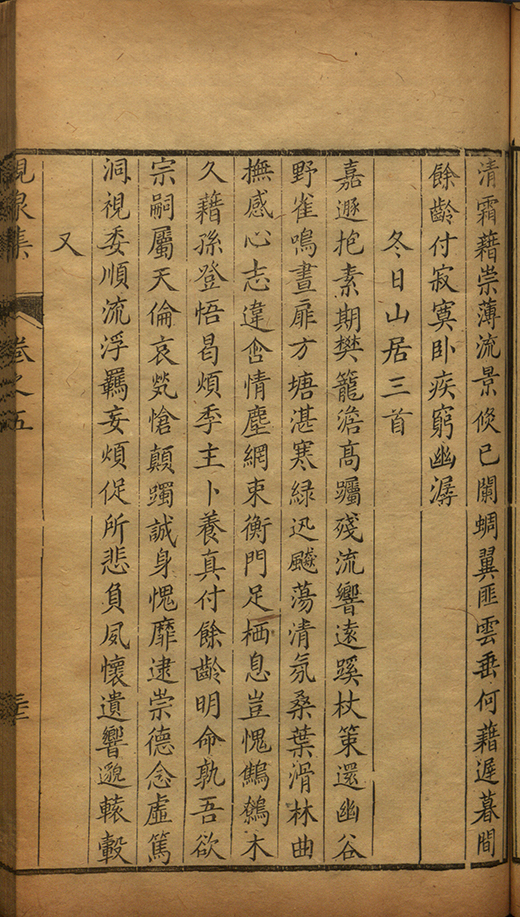 清霜藉崇薄流景倐已闌蜩翼匪雲垂何藉遲暮間
餘齡付寂寞卧疾窮幽潺
冬日山居三首
嘉遯抱素期樊籠澹高躅殘流響遠蹊杖策還幽谷
野雀鳴晝扉方塘湛寒綠迅飈蕩清氛桑葉滑林曲
撫感心志違畲情塵網束衡門足栖息豈愧鷦鷯木
久藉孫登悟曷煩季主卜養真付餘齡明命孰吾欲
宗嗣屬天倫哀煢愴顛躅誠身愧靡逮崇德念虛篤
洞視委順流浮羈妄煩促所悲負夙懷遺響邈轅轂
又
峴泉集 卷之五